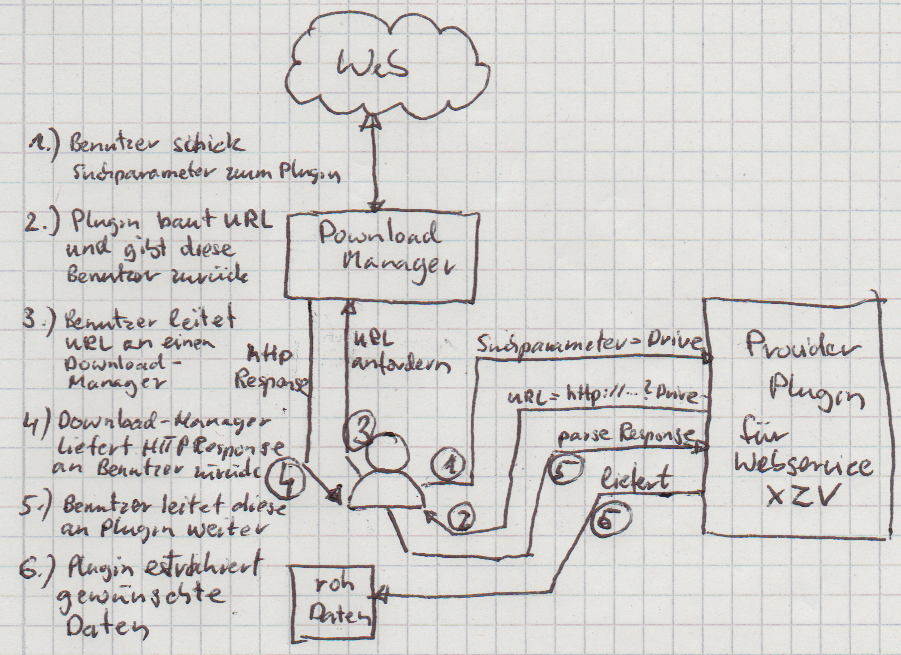 Web
1.) Benutzer schick
Suchparameter zum Plugin
2.) Plugin baut URL
und gibt diese
Benutzer zurück
3.) Benutzer leitet
URL an einen
Download-
Manager
4) Download-Manager
liefert HTTP Response
an Benutzer zurück
5.) Benutzer leitet diese
an Plugin weiter
6.) Plugin extrahiert
gewünschte
Daten
Download
Manager
http
Response
URL
anfordern
3
4
1
2
5
6
Suchparameter=Drive
URL=http://...?Drive
parse Response
liefert
Provider
Plugin
für
Webservice
XZV
roh
Daten